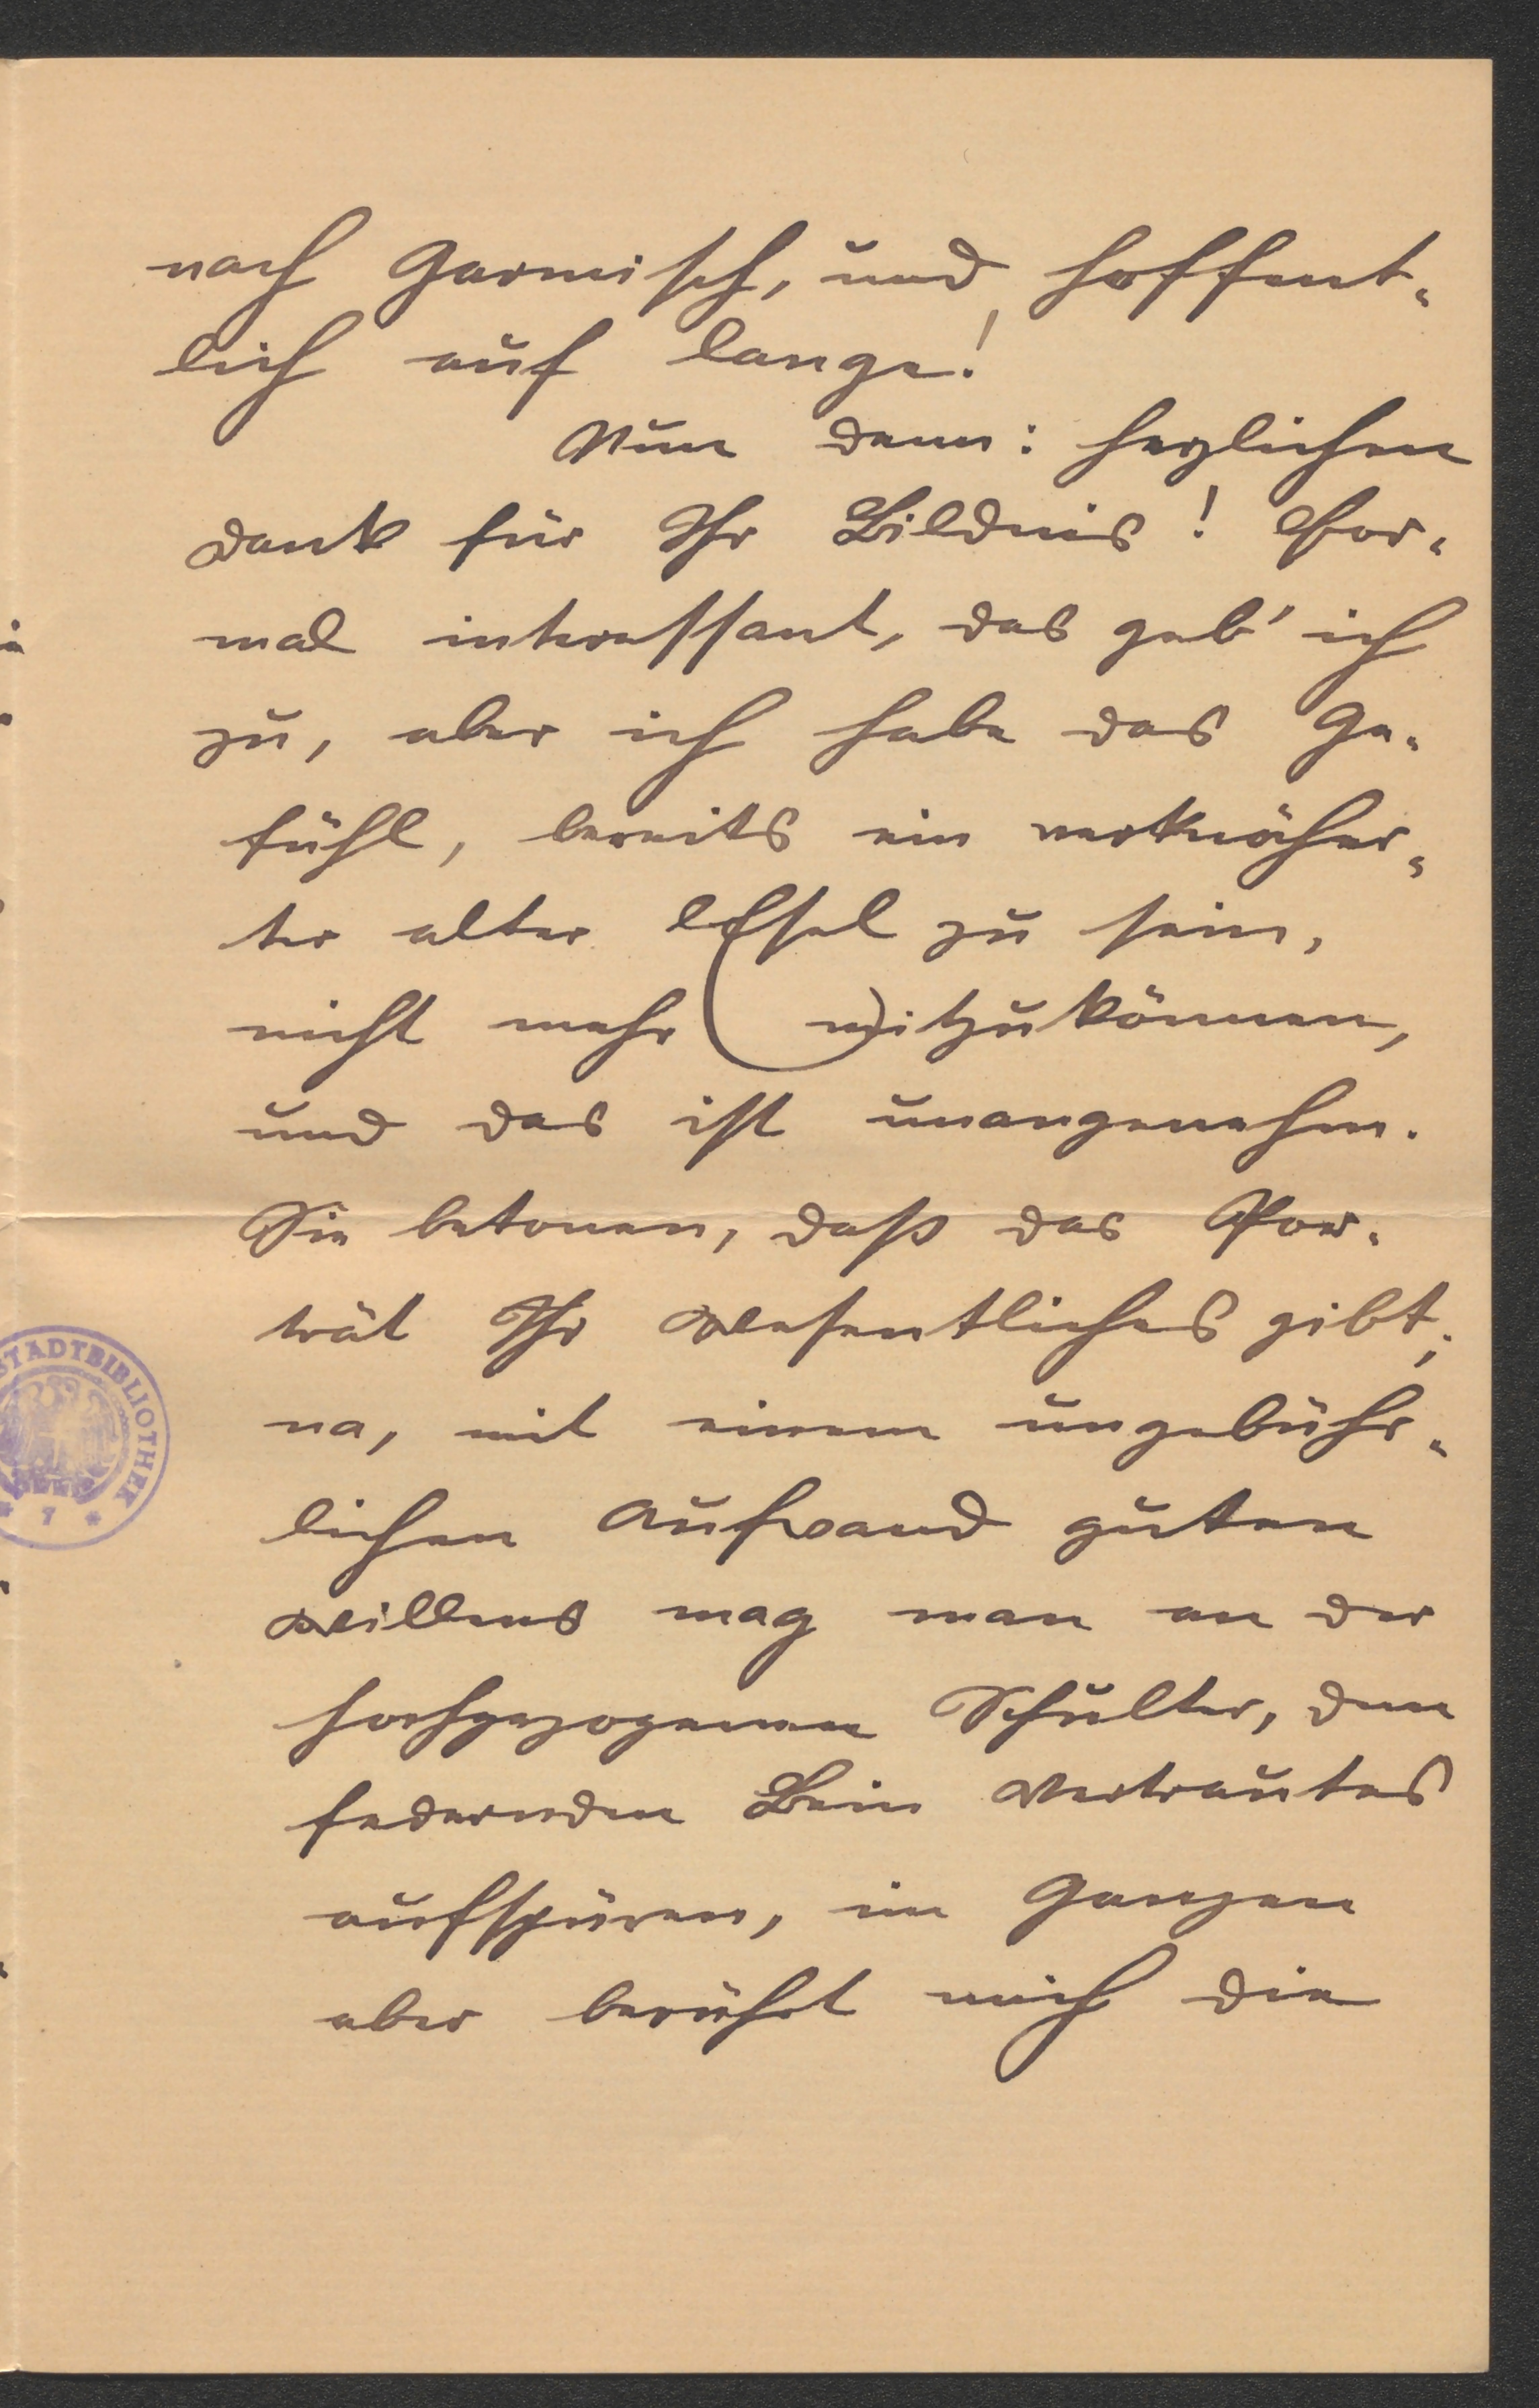 nach Garmisch, und hoffent-
lich auf lange!
Nun denn: herzlichen
Dank für Ihr Bildnis! For-
mal interessant, das geb' ich
zu, aber ich habe das Ge-
fühl, bereits ein verknöcher-
ter alter Esel zu sein,
nicht mehr mitzukönnen,
und das ist unangenehm.
Sie betonen, daß das Por-
trät Ihr Wesentliches gibt;
na, mit einem ungebühr-
lichen Aufwand guten
Willens mag man an der
hochgezogenen Schulter, dem
federnden Bein Vertrautes
aufspüren, im Ganzen
aber berührt mich die
STADTBIBLIOTHEK
* 7 *